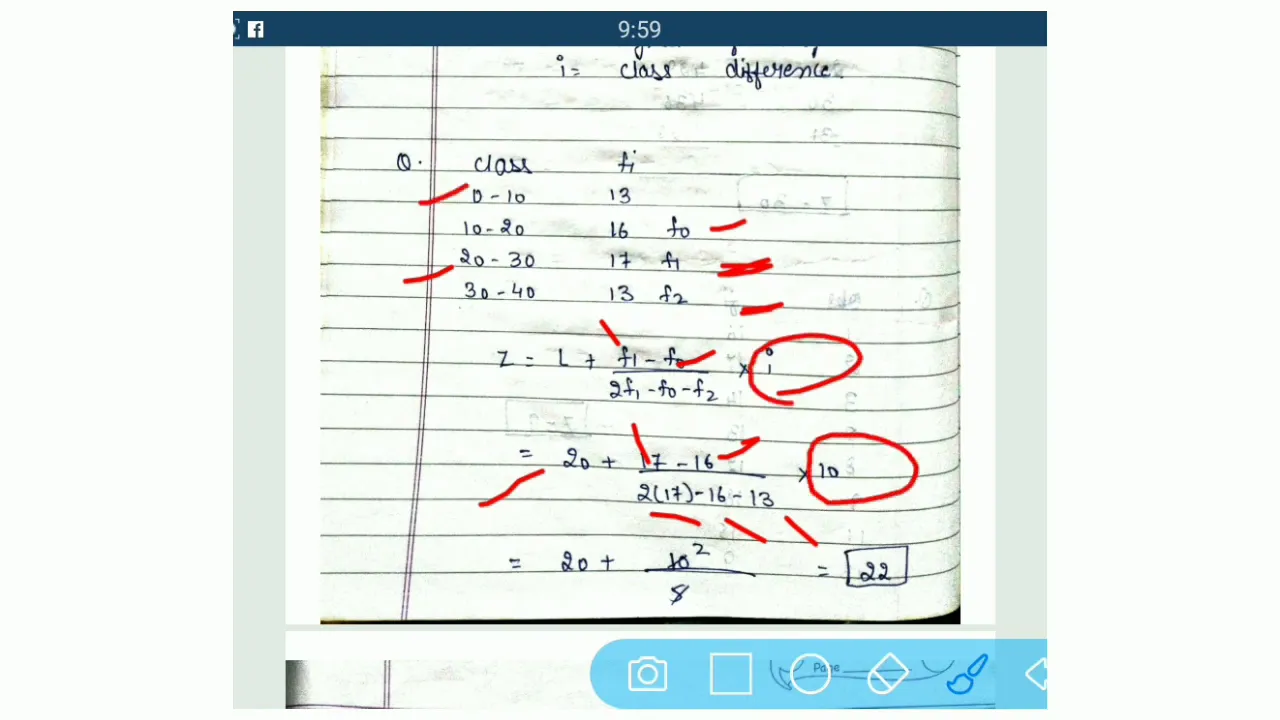 9:59
i = class difference
Q. class fi
0 - 10 13
10 - 20 16 f0
20 - 30 17 f1
30 - 40 13 f2
Z = L + f1 - f0 / 2f1 - f0 - f2 × i
= 20 + 17 - 16 / 2(17) - 16 - 13 × 10
= 20 + 10 2 / 5 = 22
Page